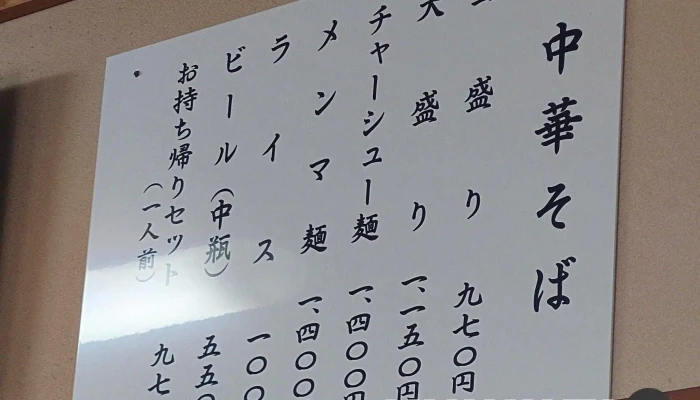 中華そば
盛り 九七〇円
大盛り 一、一五〇円
チャーシュー麺 一、四〇〇円
メンマ麺 一、四〇〇
ライス 一〇〇
ビール（中瓶） 五五〇
お持ち帰りセット
（一人前） 九七